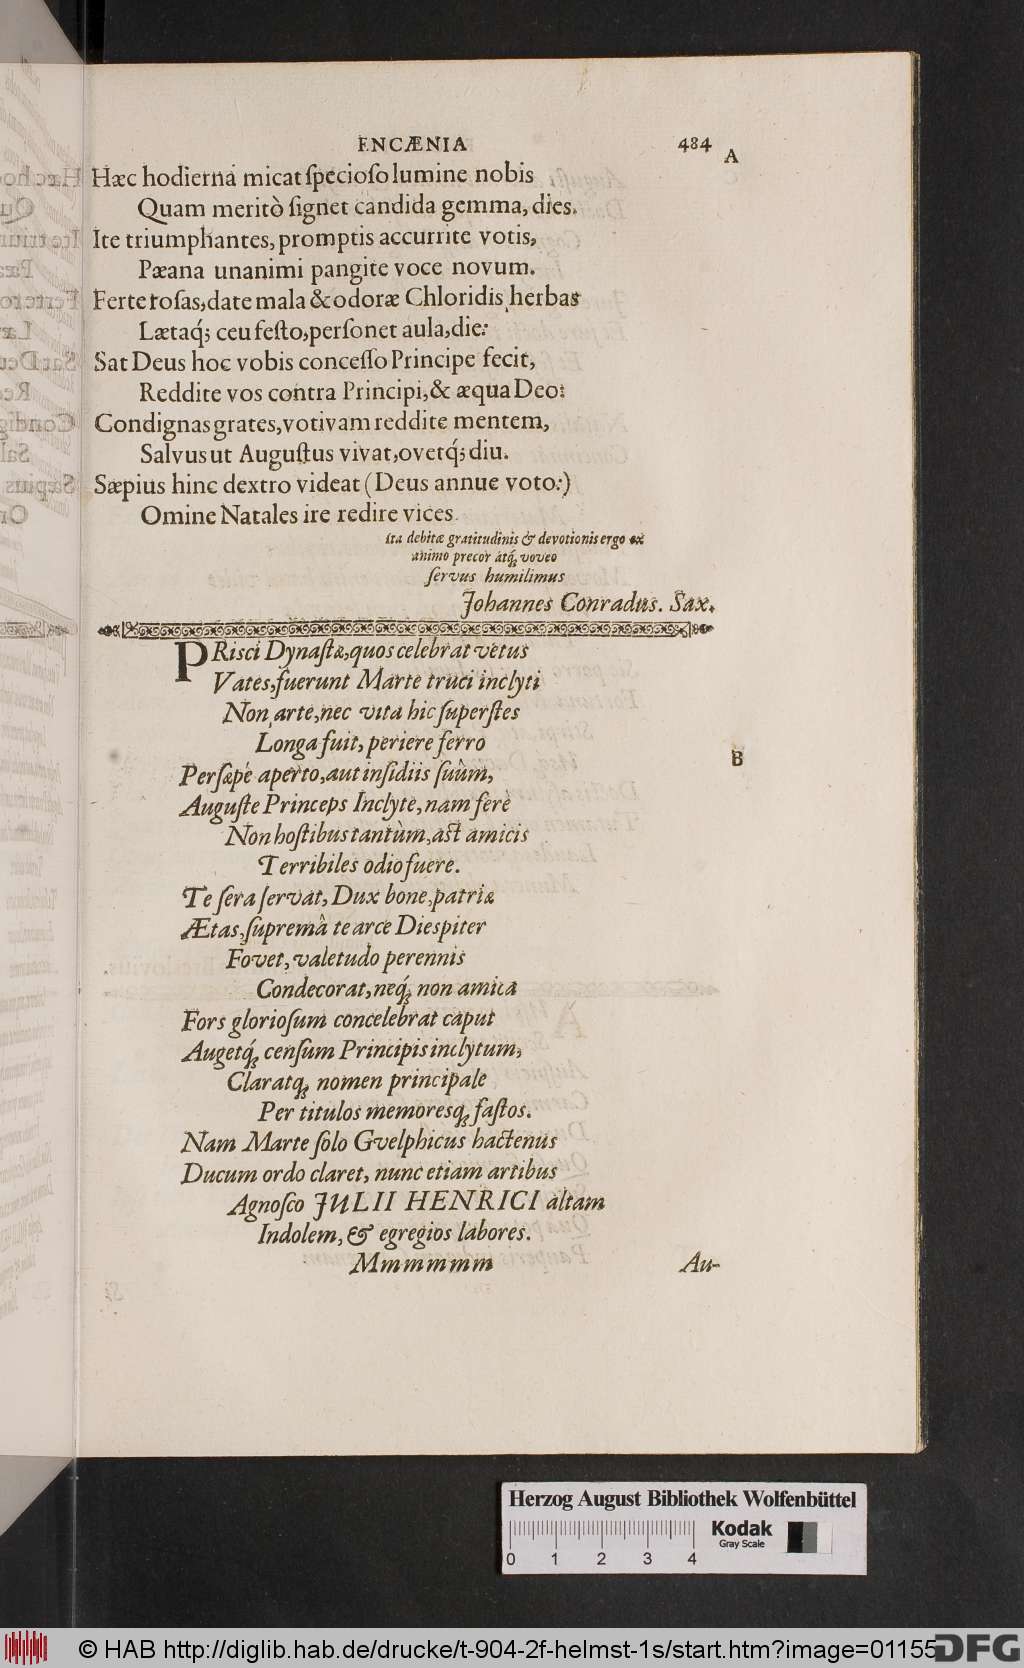 ENCÆNIA 484
A
Hæc hodierna micat ſpecioſo lumine nobis
Quam meritò ſignet candida gemma, dies.
Ite triumphantes, promptis accurrite votis,
Pæana unanimi pangite voce novum.
Ferte roſas, date mala & odoræ Chloridis herbas
Lætaq́; ceu feſto, perſonet aula, die:
Sat Deus hoc vobis conceſſo Principe fecit,
Reddite vos contra Principi, & æqua Deo:
Condignas grates, votivam reddite mentem,
Salvus ut Auguſtus vivat, ovetq́; diu.
Sæpius hinc dextro videat (Deus annue voto:)
Omine Natales ire redire vices.
ita debitæ gratitudinis & devotionis ergo ex
animo precor atq́; voveo
ſervus humilimus
Johannes Conradus. Sax.
PRiſci Dynaſtæ, quos celebrat vetus
Vates, fuerunt Marte truci inclyti
Non arte, nec vita hic ſuperſtes
Longa fuit, periere ferro
Perſæpè aperto, aut inſidiis ſuûm,
B
Auguſte Princeps Inclyte, nam ferè
Non hoſtibus tantùm, aſt amicis
Terribiles odio fuere.
Te ſera ſervat, Dux bone, patriæ
Ætas, ſupremâ te arce Dieſpiter
Fovet, valetudo perennis
Condecorat, neq́; non amica
Fors glorioſum concelebrat caput
Augetq́; cenſum Principis inclytum,
Claratq; nomen principale
Per titulos memoresq; faſtos.
Nam Marte ſolo Gvelphicus hactenus
Ducum ordo claret, nunc etiam artibus
Agnoſco JULII HENRICI altam
Indolem, & egregios labores.
Mmmmmm Au-
Herzog August Bibliothek Wolfenbüttel
Kodak
Gray Scale
0 1 2 3 4
© HAB http://diglib.hab.de/drucke/t-904-2f-helmst-1s/start.htm?image=01155
DFG